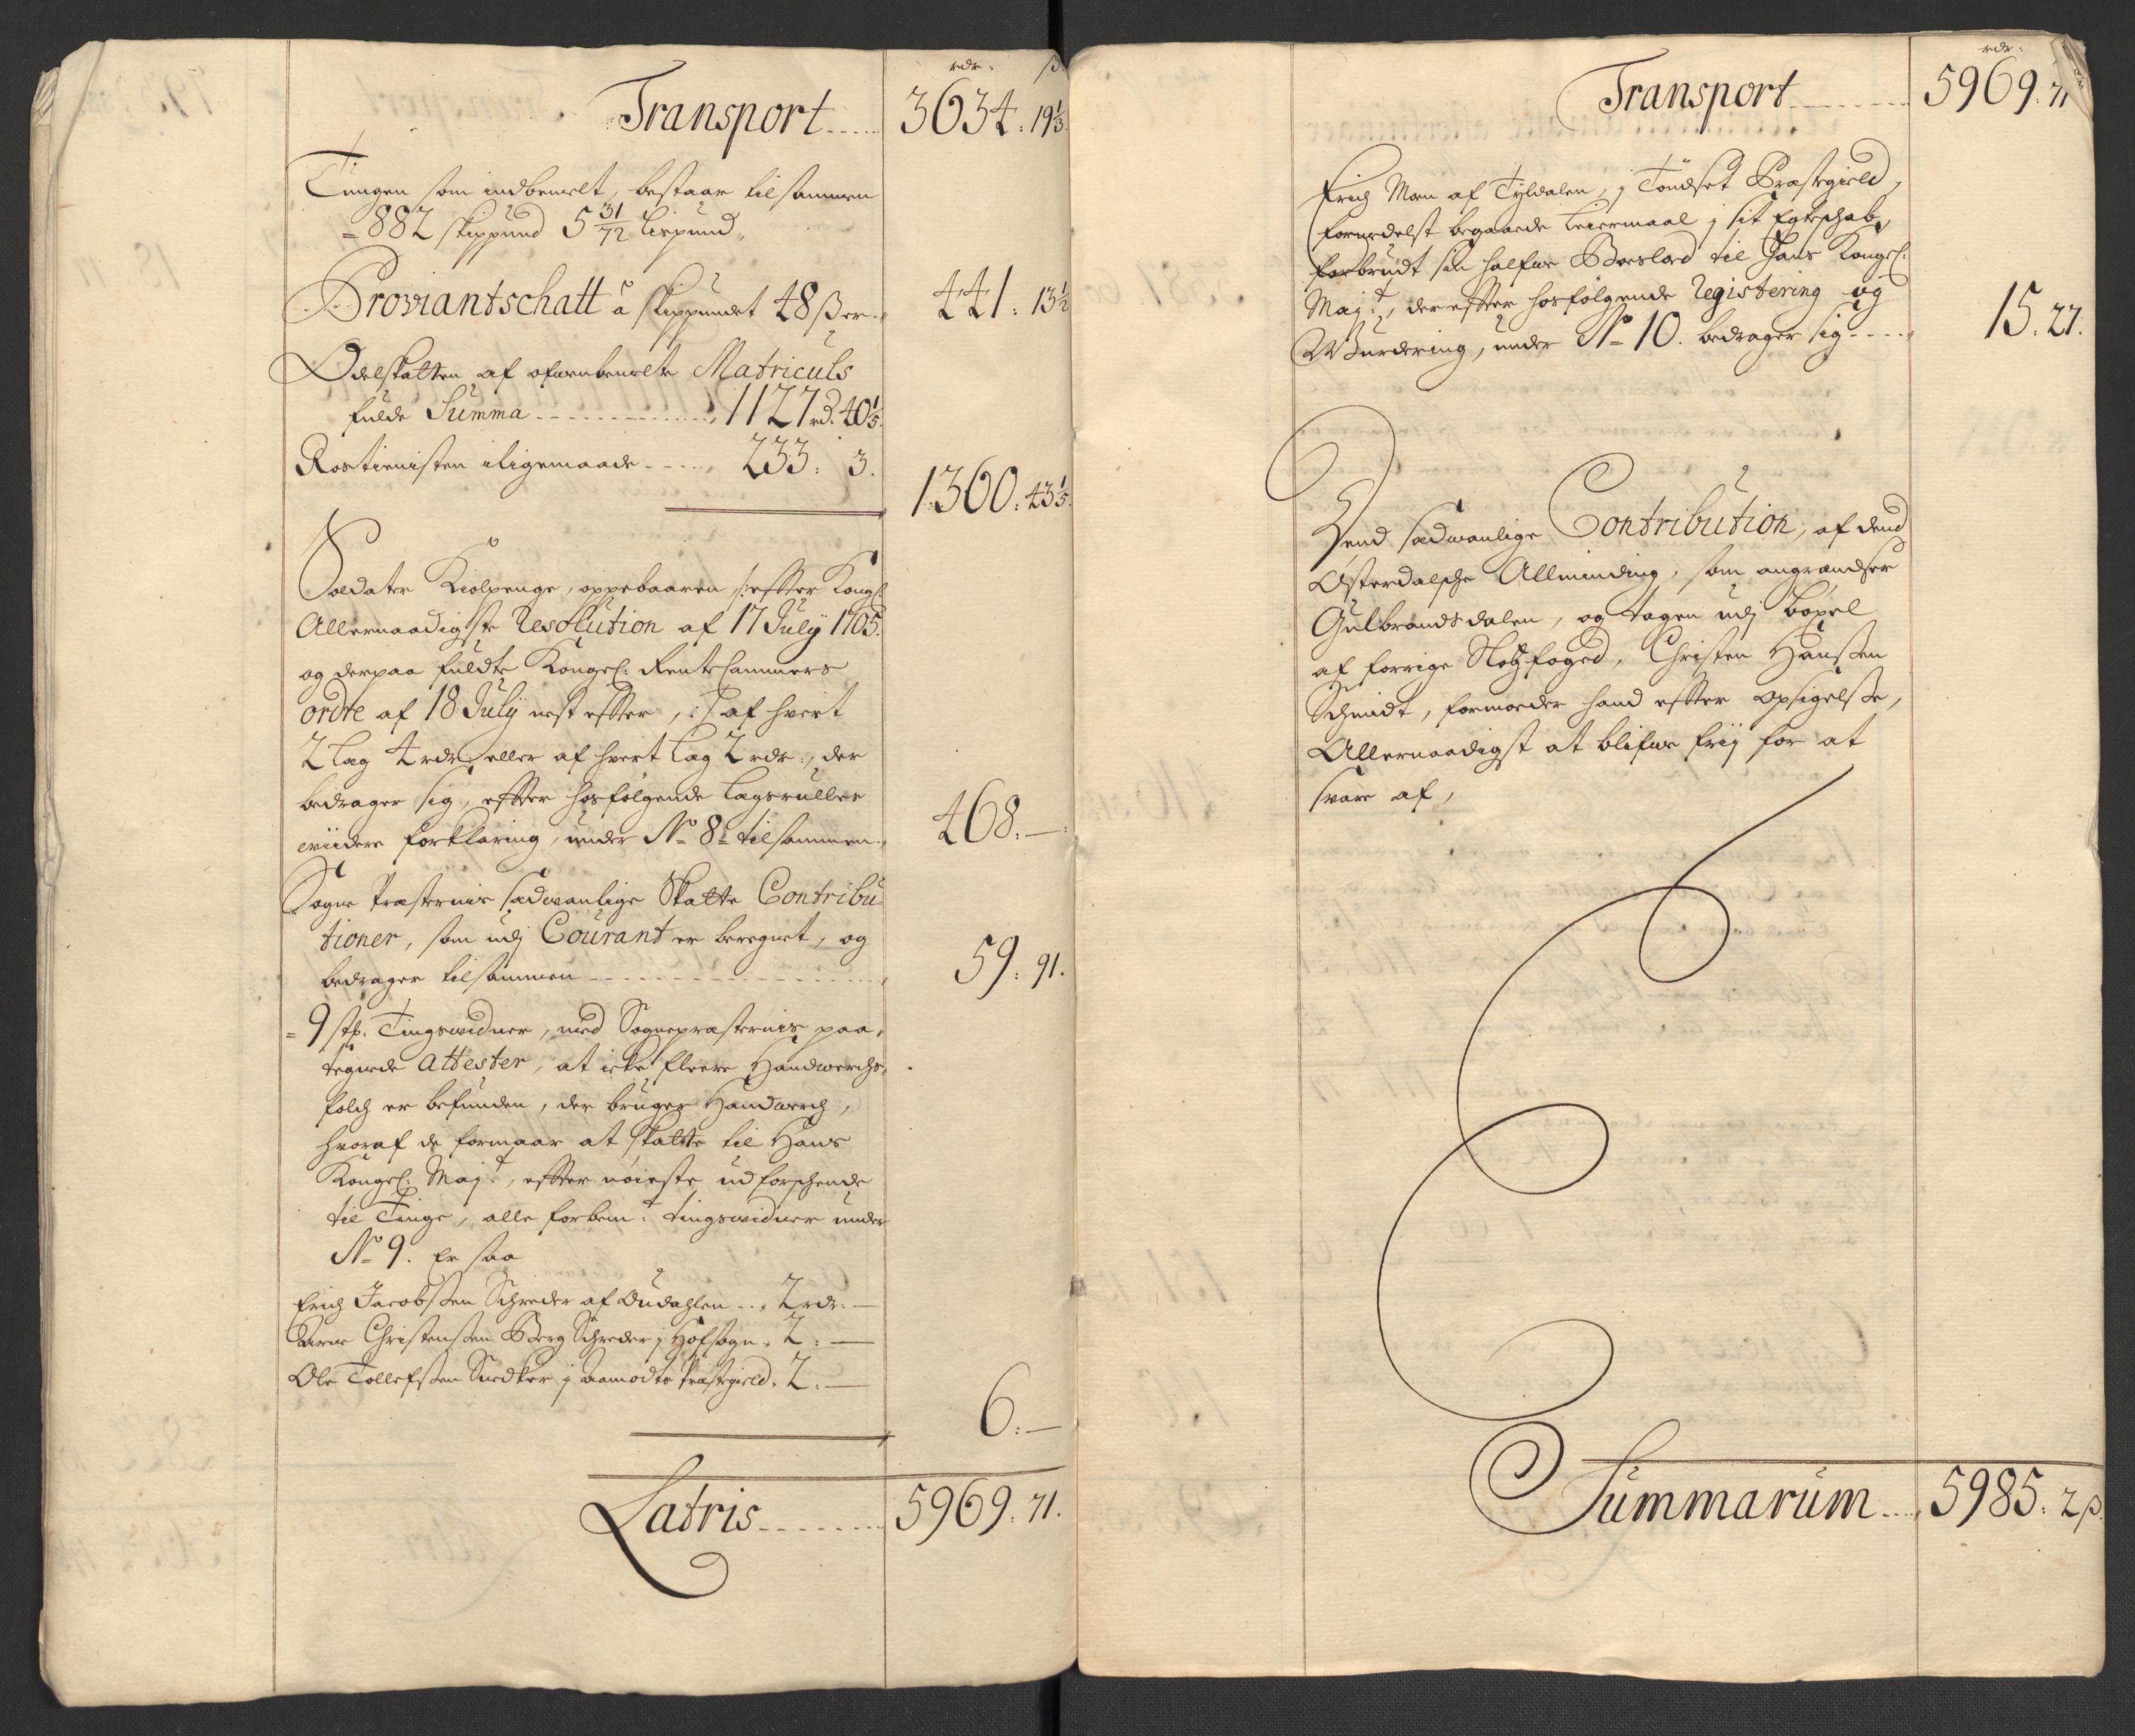 rdr: ß
Transport ..... 3634: 19⅓
Tungen som indbemelt, bestaar tilsammen
= 882 skippund 5 31/72 Lispund.
Proviantschatt à skippundet 48 ß er. 441: 13½
Odelskatten af ofvenbemelte Matriculs
fulde Summa ---------- 1127 rd. 40⅕.
Rostienisten iligemaade ----- 233: 3.
1360: 43⅕
Soldater Kiolpenge, oppebaaren /: effter Kongl:
Allernaadigste Resolution af 17 July 1705.
og derpaa fuldte Kongel: Rente Cammers
ordre af 18 July nest effter, :/ af hvert
2 Lag 4 rdr. eller af hvert Lag 2 rdr:, der
bedrager sig, effter hosfølgende Lagsrulles
viidere forklaring, under No 8 = tilsammen. 468. —
Sogne Præsternis sædvanlige Skatte Contribu
tioner, som udj Courant er beregnet, og
bedrager tilsammen ---------- 59: 91.
= 9 stk. Tingsvidner, med Sognepræsternis paa,
tegnede Attester, at icke fleere Handwerchs,
folch er befunden, der bruger Handwerch,
hvoraf de formaar at skatte til Hans
Kongel: Maj:t, effter nøieste udforschende
til Tinge, alle forbem:t tingsvidner under
No 9. Er saa
Erich Jacobsen Schreder af Dudahlen ... 2 rdr. —
Christensen Berg Schreder j Hofsogn. 2: —
Ole Tollefsen Snedker j Aamodts Præstegield. 2. —
6: —
Latris ........ 5969: 71.
rdr:
Transport ........ 5969: 71
Erich Moen af Tyldalen, j Tøndset Præstegield,
formedelst begaaede Leiermaal j sit Egteschab,
forbrudt sin halfve Boeslod til Hans Kongel:
Maj:t, der effter hosfølgende Registering og
Wurdering, under No 10. bedrager sig ---- 15. 27.
Dend sædvanlige Contribution, af dend
Østerdalsche Allminding, som angrændser
Gulbrandsdalen, og tagen udj bøxel
af forrige Slotzfoged, Christen Hansen
Schmidt, formoder hand effter opsigelse,
Allernaadigst at blifve frij for at
svare af,
Summarum ... 5985: 2 ß.